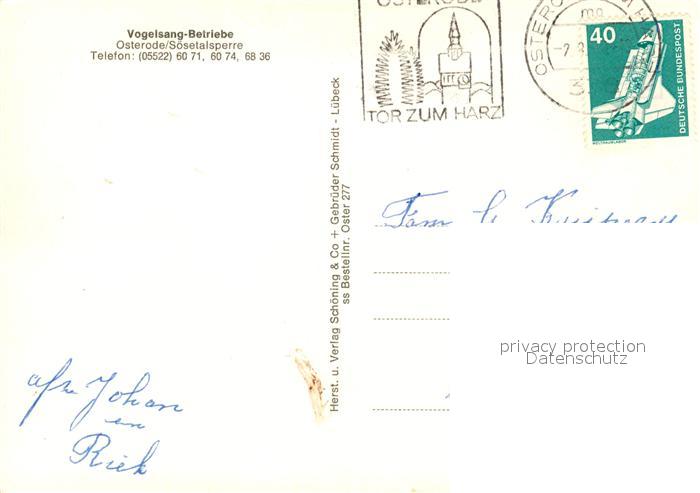 Vogelsang-Betriebe
Osterode/Sösetalsperre
Telefon: (05522) 60 71, 60 74, 68 36
OSTERODE
TOR ZUM HARZ
OSTERO
40
DEUTSCHE BUNDESPOST
WELTRAUMLABOR
Herst. u. Verlag Schöning & Co + Gebrüder Schmidt - Lübeck
ss Bestellnr. Oster 277
Fam
privacy protection
Datenschutz
afz. Johan
en
Riek